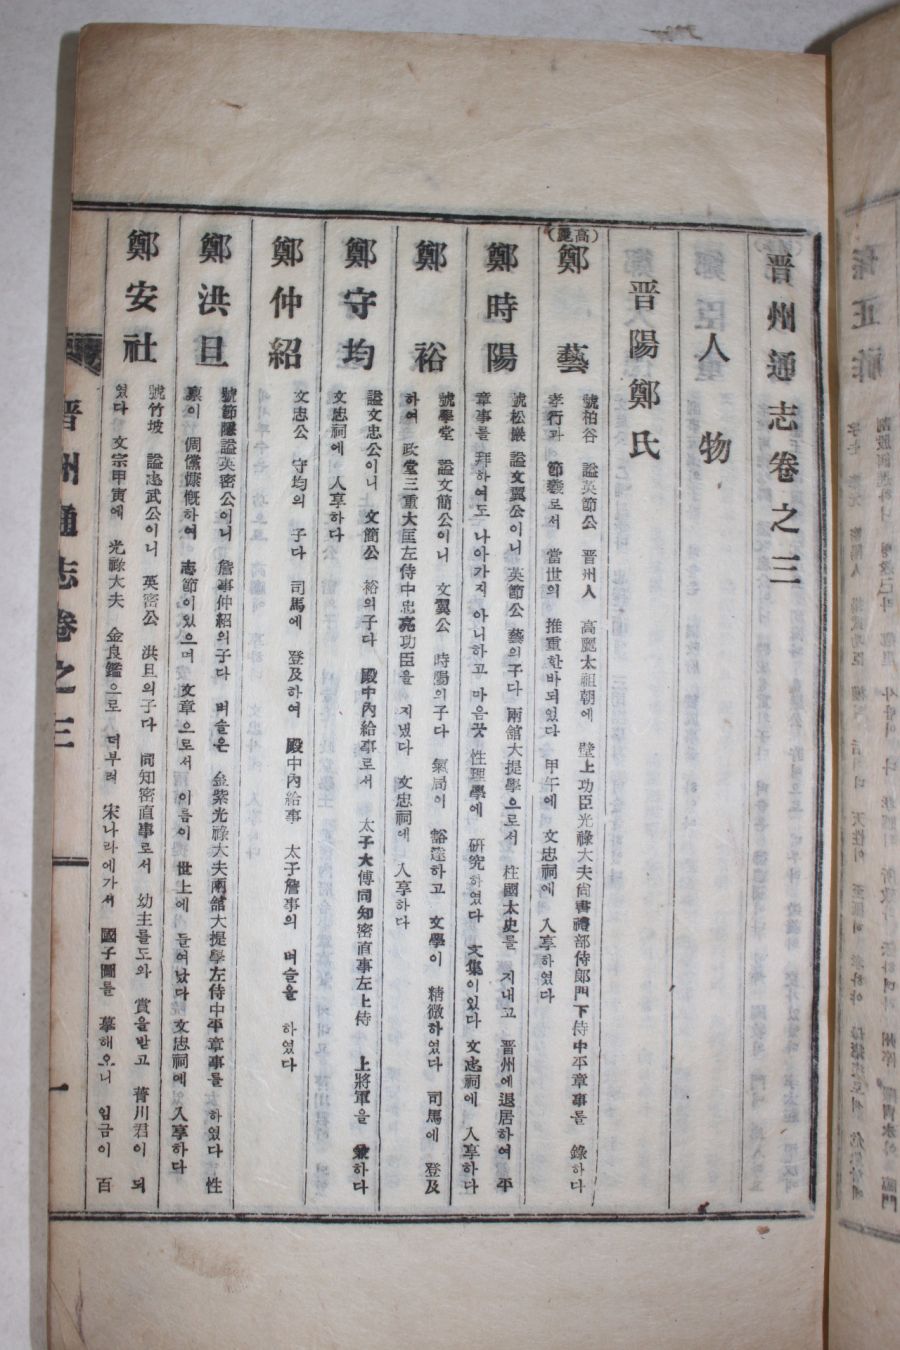 晋州通志卷之三
人物
晋陽鄭氏
(高麗)
鄭藝
號柏谷 諡英節公 晋州人 高麗太祖朝에 壁上功臣光祿大夫尙書禮部侍郞門下侍中平章事를 錄하다
孝行과 節義로서 當世의 推重한바되였다 甲午에 文忠祠에 入享하였다
鄭時陽
號松巖 諡文翼公이니 英節公 藝의子다 兩館大提學으로서 柱國太史를 지내고 晋州에退居하여 平
章事를 拜하여도 나아가지 아니하고 마음끗 性理學에 硏究하였다 文集이있다 文忠祠에 入享하다
鄭裕
號學堂 諡文簡公이니 文翼公 時陽의子다 氣局이 豁達하고 文學이 精微하였다 司馬에 登及
하여 政堂三重大匡左侍中忠亮功臣을 지냈다 文忠祠에 入享하다
鄭守均
諡文忠公이니 文簡公 裕의子다 殿中內給事로서 太子大傅同知密直事左上侍 上將軍을 兼하다
文忠祠에 入享하다
鄭仲紹
文忠公 守均의 子다 司馬에 登及하여 殿中內給事 太子詹事의 벼슬을 하였다
鄭洪旦
號節隱諡英密公이니 詹事仲紹의子다 벼슬은 金紫光祿大夫兩館大提學左侍中平章事를 하였다 性
稟이 倜儻慷慨하여 志節이있으며 文章으로서 이름이 世上에 들여났다 文忠祠에 入享하다
鄭安社
號竹坡 諡忠武公이니 英密公 洪旦의子다 同知密直事로서 幼主를도와 賞을받고 菁川君이 되
였다 文宗甲寅에 光祿大夫 金良鑑으로 더부러 宋나라에가서 國子圖를 摹해오니 임금이 百
晋州通志卷之三
一